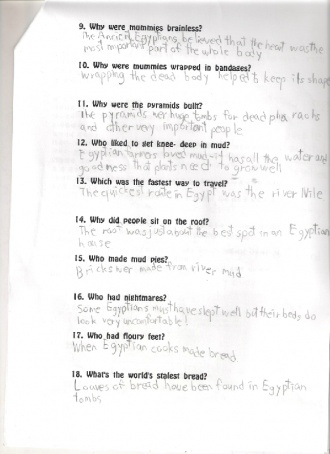 9. Why were mummies brainless?
The Ancient Egyptians believed that the heart was the
most important part of the whole body
10. Why were mummies wrapped in bandages?
Wrapping the dead body helped to keep its shape
11. Why were the pyramids built?
The pyramids wer huge tombs for dead
and other very important people
12. Who liked to get knee- deep in mud?
Egyptian loved mud-it has all the water and
goodness that plants need to grow well
13. Which was the fastest way to travel?
The quickest route in Egypt was the river Nile
14. Why did people sit on the roof?
The roof was just about the best spot in an Egyptian
house
15. Who made mud pies?
Bricks wer made from river mud
16. Who had nightmares?
Some Egyptians must have slept well but their beds do
look very uncomfortable!
17. Who had floury feet?
When Egyptian cooks made bread
18. What's the world's stalest bread?
Loaves of bread have been found in Egyptian
tombs